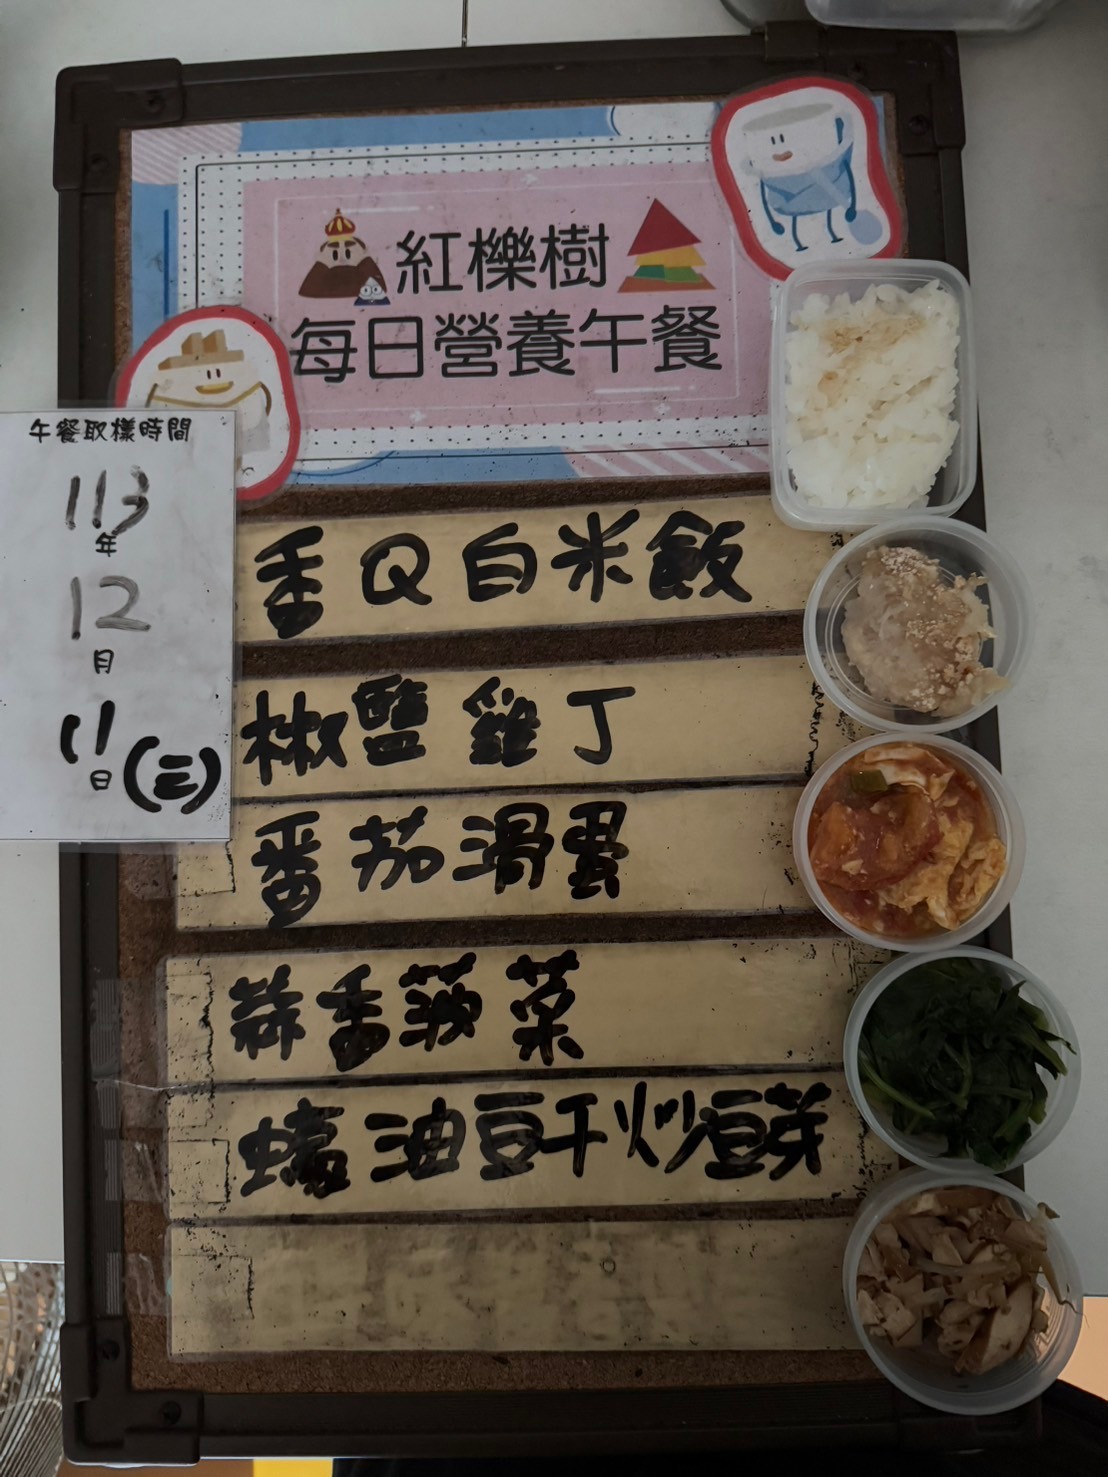 紅櫟樹
每日營養午餐
午餐取樣時間
113
年
12
月
11
日
(三)
香Q白米飯
椒鹽雞丁
番茄滑蛋
蒜香菠菜
蠔油豆干炒豆芽